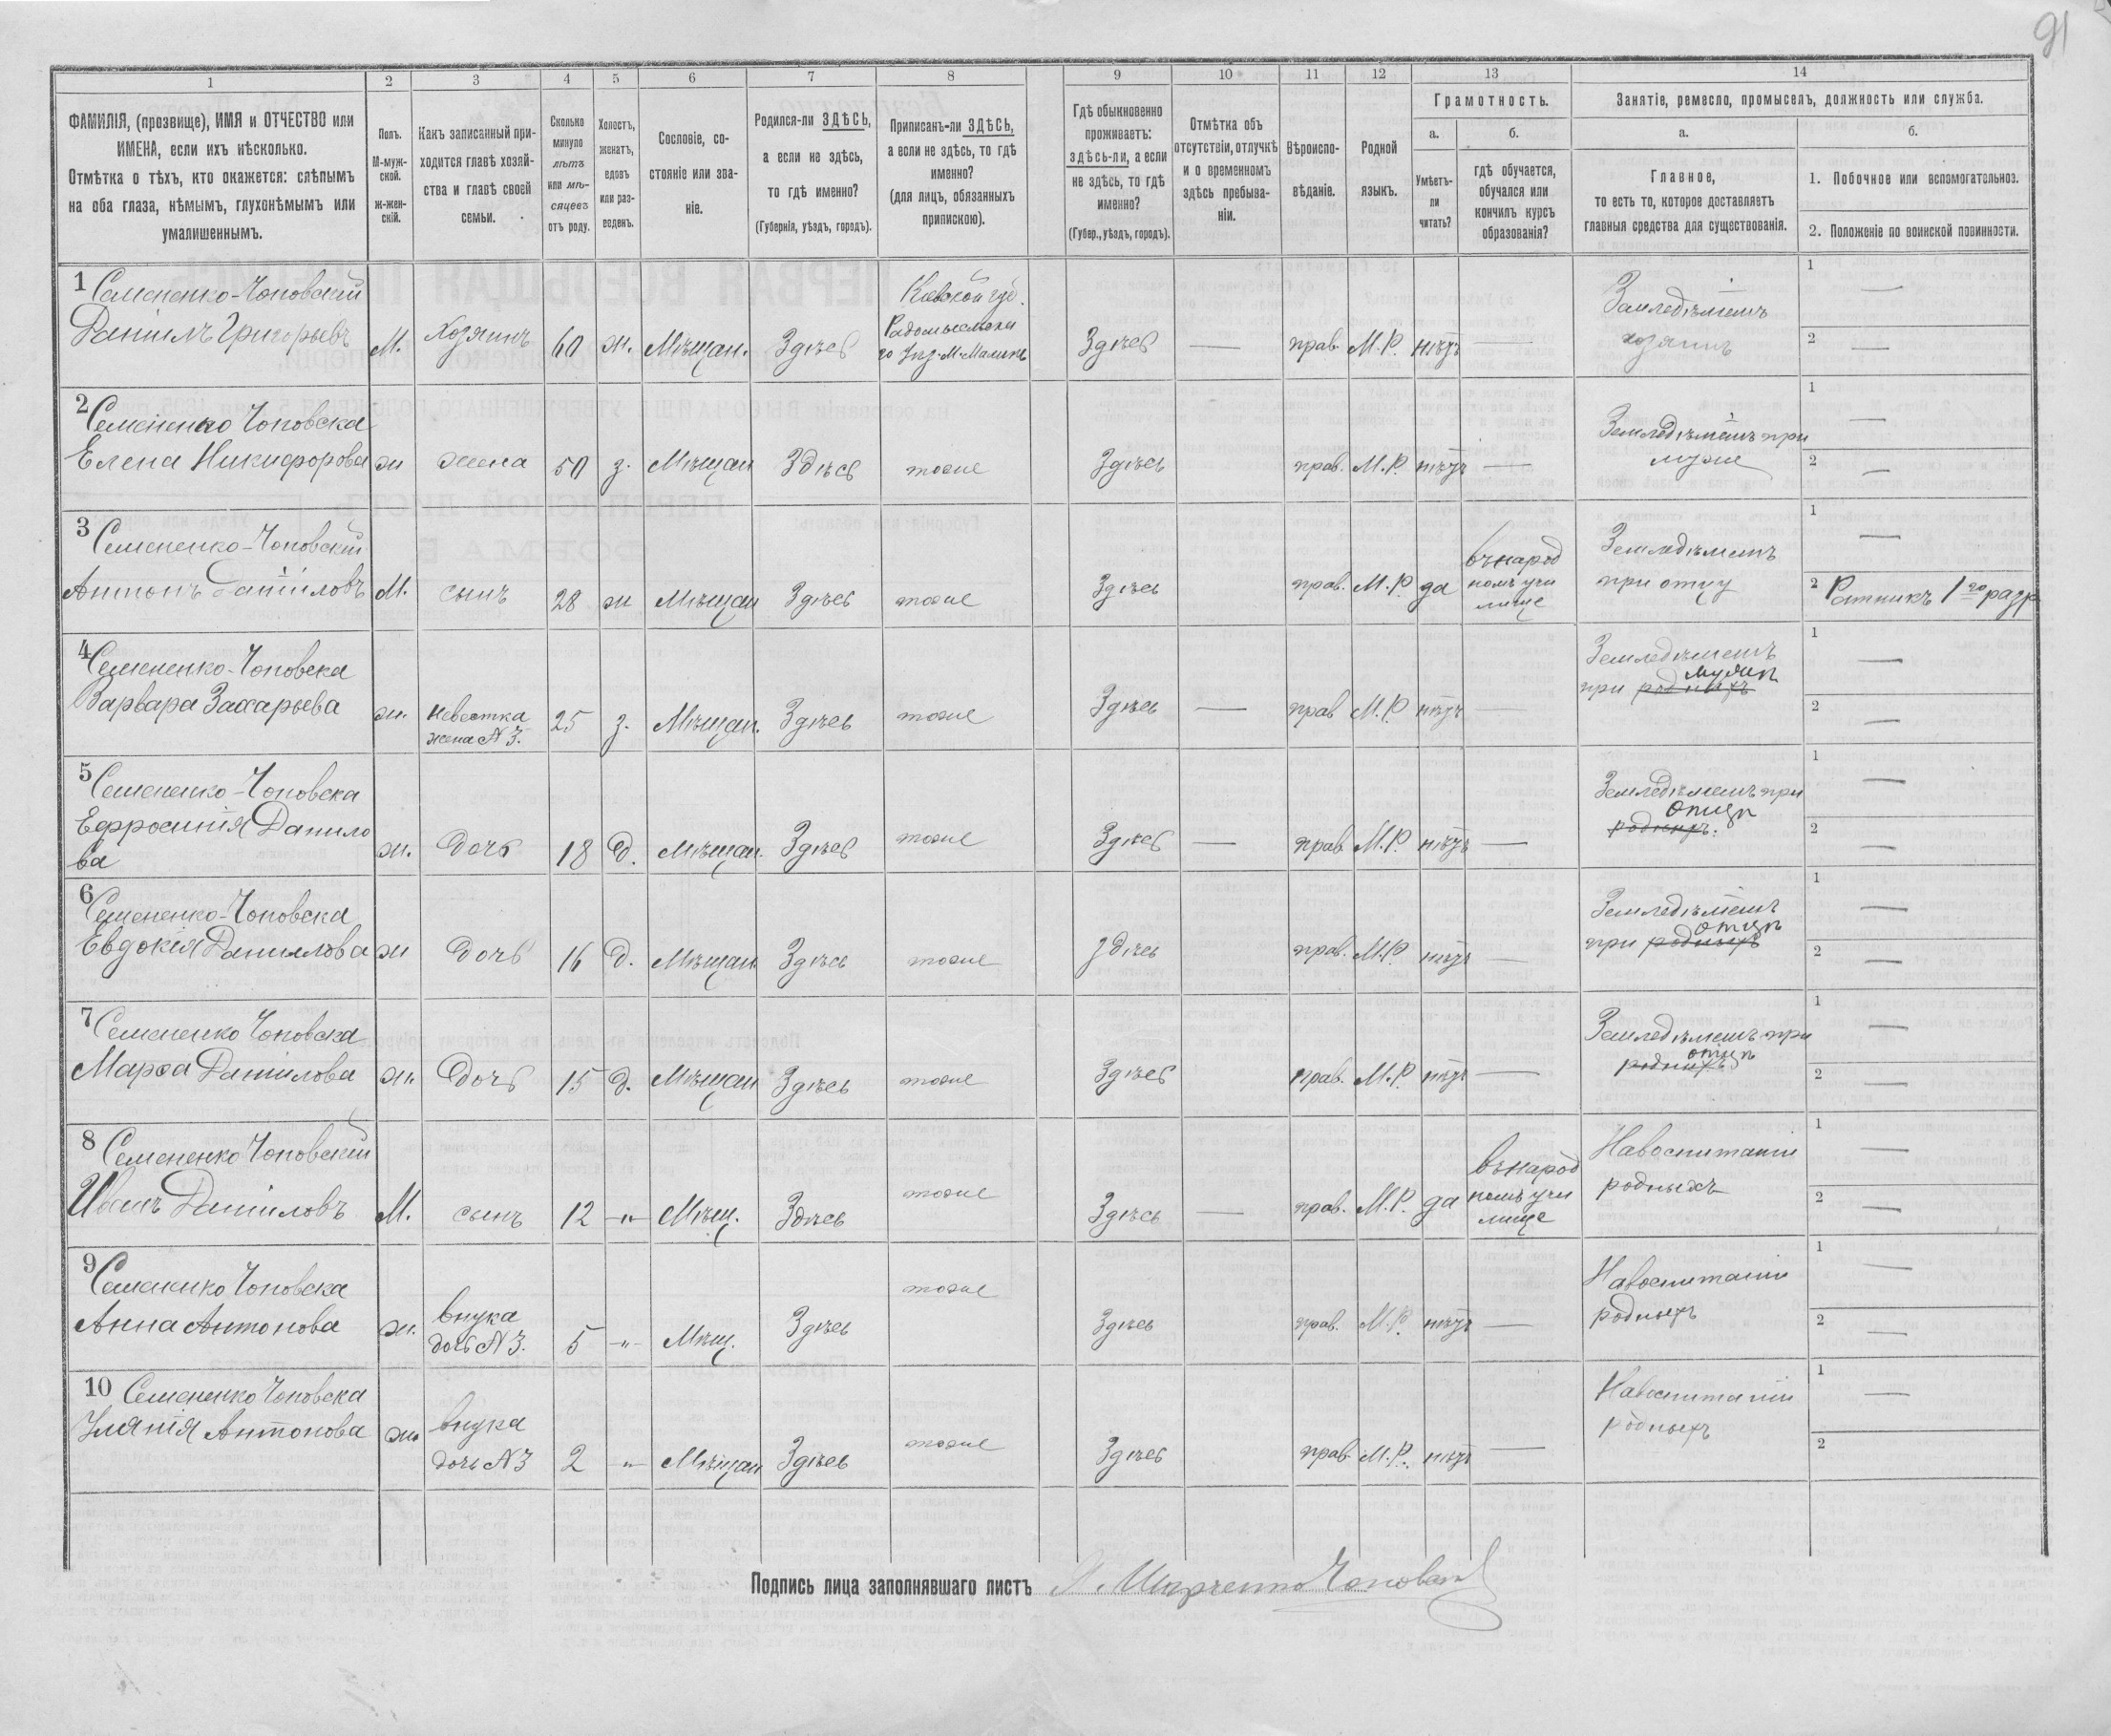 91
1 2 3 4 5 6 7 8 9 10 11 12 13 14
ФАМИЛІЯ, (прозвище), ИМЯ и ОТЧЕСТВО или
ИМЕНА, если ихъ нѣсколько.
Отмѣтка о тѣхъ, кто окажется: слѣпымъ
на оба глаза, нѣмымъ, глухонѣмымъ или
умалишеннымъ.
Полъ.
М-муж-
ской.
ж-жен-
скій.
Какъ записанный при-
ходится главѣ хозяй-
ства и главѣ своей
семьи.
Сколько
минуло
лѣтъ
или мѣ-
сяцевъ
отъ роду.
Холостъ,
женатъ,
вдовъ
или раз-
веденъ.
Сословіе, со-
стояніе или зва-
ніе.
Родился-ли ЗДѢСЬ,
а если не здѣсь,
то гдѣ именно?
(Губернія, уѣздъ, городъ).
Приписанъ-ли ЗДѢСЬ,
а если не здѣсь, то гдѣ
именно?
(для лицъ, обязанныхъ
припискою).
Гдѣ обыкновенно
проживаетъ:
здѣсь-ли, а если
не здѣсь, то гдѣ
именно?
(Губер., уѣздъ, городъ).
Отмѣтка объ
отсутствіи, отлучкѣ
и о временномъ
здѣсь пребыва-
ніи.
Вѣроиспо-
вѣданіе.
Родной
языкъ.
Грамотность.
а.
Умѣетъ-
ли
читать?
б.
гдѣ обучается,
обучался или
кончилъ курсъ
образованія?
Занятіе, ремесло, промыселъ, должность или служба.
а.
Главное,
то есть то, которое доставляетъ
главныя средства для существованія.
б.
1. Побочное или вспомогательное.
2. Положеніе по воинской повинности.
1 Семененко-Чоповскій
Даніилъ Григорьевъ
М.
Хозяинъ
60
ж.
Мѣщан.
Здѣсь
Кіевской губ.
Радомысльска
го Уѣз. М. Малинъ
Здѣсь
—
прав.
М.Р.
нѣтъ
—
Земледѣліемъ
хозяинъ
1 —
2 —
2 Семененко Чоповска
Елена Никифорова
ж
жена
50
з.
Мѣщан
Здѣсь
тоже
Здѣсь
прав.
М.Р.
нѣтъ
—
Земледѣліемъ при
мужѣ
1 —
2 —
3 Семененко-Чоповскій
Антонъ Даніиловъ
М.
сынъ
28
ж
Мѣщан
Здѣсь
тоже
Здѣсь
прав.
М.Р.
да
въ народ
номъ учи
лище
Земледѣліемъ
при отцу
1 —
2 Ратникъ 1го разр
4 Семененко-Чоповска
Варвара Захарьева
ж.
невестка
жена N 3.
25
з.
Мѣщан.
Здѣсь
тоже
Здѣсь
—
прав
М.Р.
нѣтъ
—
Земледѣліемъ
мужѣ
при родныхъ
1 —
2 —
5 Семененко-Чоповска
Ефросинія Данило
ва
ж.
дочь
18
д.
Мѣщан.
Здѣсь
тоже
Здѣсь
—
прав.
М.Р.
нѣтъ
—
Земледѣліемъ при
отцѣ
родныхъ.
1 —
2 —
6 Семененко-Чоповска
Евдокія Данилова
ж
дочь
16
д.
Мѣщан
Здѣсь
тоже
Здѣсь
прав.
М.Р.
нѣтъ
—
Земледѣліемъ
отцѣ
при родныхъ
1 —
2 —
7 Семененко Чоповска
Марфа Даніилова
ж.
дочь
15
д.
Мѣщан
Здѣсь
тоже
Здѣсь
прав.
М.Р.
нѣтъ
—
Земледѣліемъ при
отцѣ
родныхъ
1 —
2 —
8 Семененко Чоповскій
Иванъ Даніиловъ
М.
сынъ
12
—"—
Мѣщ.
Здѣсь
тоже
Здѣсь
—
прав.
М.Р.
да
въ народ
номъ учи
лище
На воспитаніи
родныхъ
1 —
2 —
9 Семененко Чоповска
Анна Антонова
ж.
внука
дочь N 3.
5
-"-
Мѣщ.
Здѣсь
тоже
Здѣсь
прав.
М.Р.
нѣтъ
—
На воспитаніи
родныхъ
1 —
2 —
10 Семененко Чоповска
Уляния Антонова
ж.
внука
дочь N 3
2
-"-
Мѣщан
Здѣсь
тоже
Здѣсь
прав.
М.Р.
нѣтъ
—
На воспитаніи
родныхъ
1 —
2
Подпись лица заполнявшаго листъ